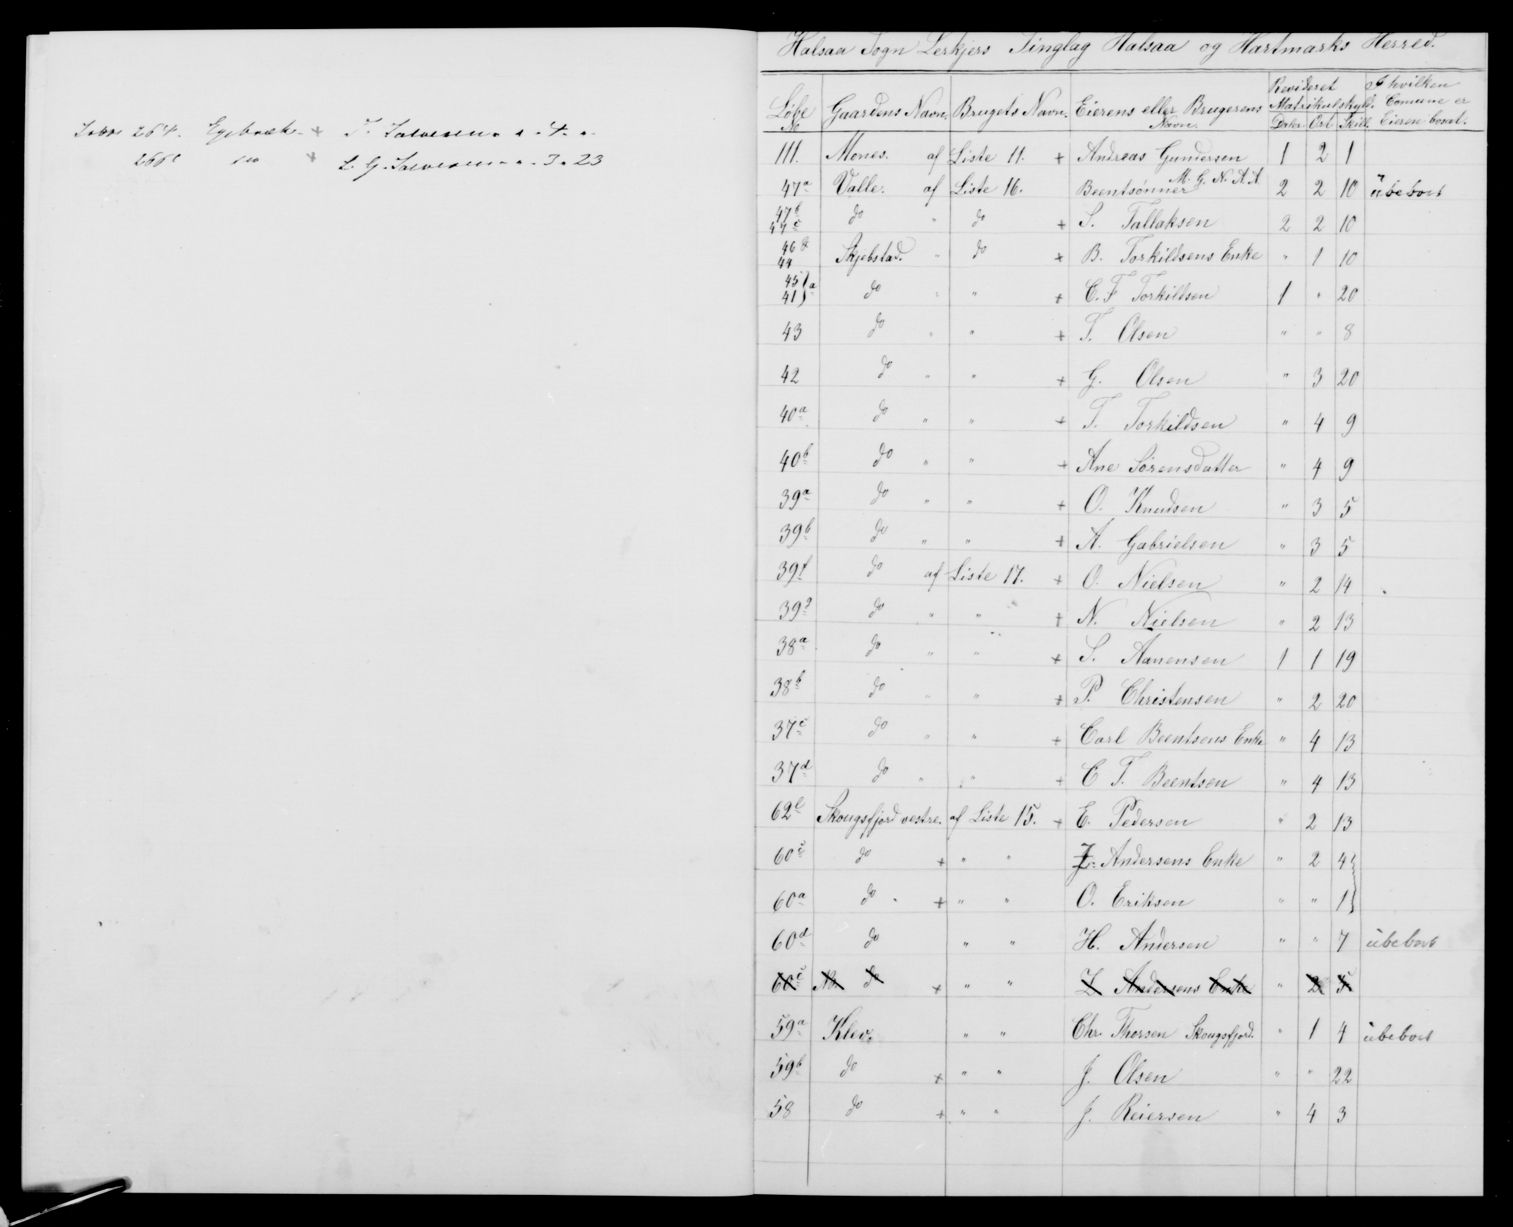 264. +
266 do + L. G. 3. 23
Halsaa Sogn Lerkjers Tinglag Halsaa og Hartmarks Herred.
Løbe No Gaardens Navn. Brugets Navn. Eierens eller Brugerens Navn. Revideret Matrikulskyld. Daler Ort Skill. I hvilken Comune er Eieren bosat.
111. Mones. af Liste 11. + Andreas Gundersen 1 2 1
47a Valle. af Liste 16. Beentsønner M. G. N. A. A. 2 2 10 ubeboet
47b 47c do " do + S. Tallaksen 2 2 10
46 44 Skjebstad. " do + B. Torkildsens Enke " 1 10
45 41 a do " " + C. F Torkildsen 1 " 20
43 do " " + T. Olsen " " 8
42 do " " + G. Olsen " 3 20
40a do " " + T. Torkildsen " 4 9
40b do " " + Ane Sørensdatter " 4 9
39a do " " + O. Knudsen " 3 5
39b do " " + A. Gabrielsen " 3 5
39f do af Liste 17. + O. Nielsen " 2 14
39g do " " + N. Nielsen " 2 13
38a do " " + S. Aanensen 1 1 19
38b do " " + P. Christensen " 2 20
37c do " " + Carl Beentsens Enke " 4 13
37d do " " + C T. Beentsen " 4 13
62 Skougsfjord vestre. af Liste 15. + E. Pedersen " 2 13
60c do + " " Andersens Enke " 2 4
60a do " + " " O. Eriksen " " 1
60d do " " H. Andersen " " 7 ubeboet
60c No. do + " " L Andersens Enke " 2 5
59a Klev. " " Chr. Thorsen Skougsfjord. " 1 4 ubeboet
59b do + " " J. Olsen " " 22
58 do + " " J. Reiersen " 4 3